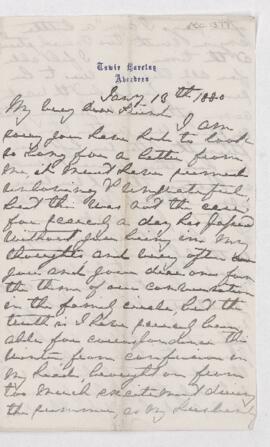 Towie Barclay
Aberdeen
Jany 13th 1880
My very dear Friend
I am
sorry you have had to look
so long for a letter from
me, it must have seemed
unloving & ungrateful,
but this was not the case
for scarcely a day has passed
without your being in my
thoughts and very often
you and your dear ones form
the theme of our conversation
in the family circle, but the
truth is I have scarcely been
able for correspondence this
Winter from confusion in
my head, brought on from
too much excitement during
the summer, as my husband